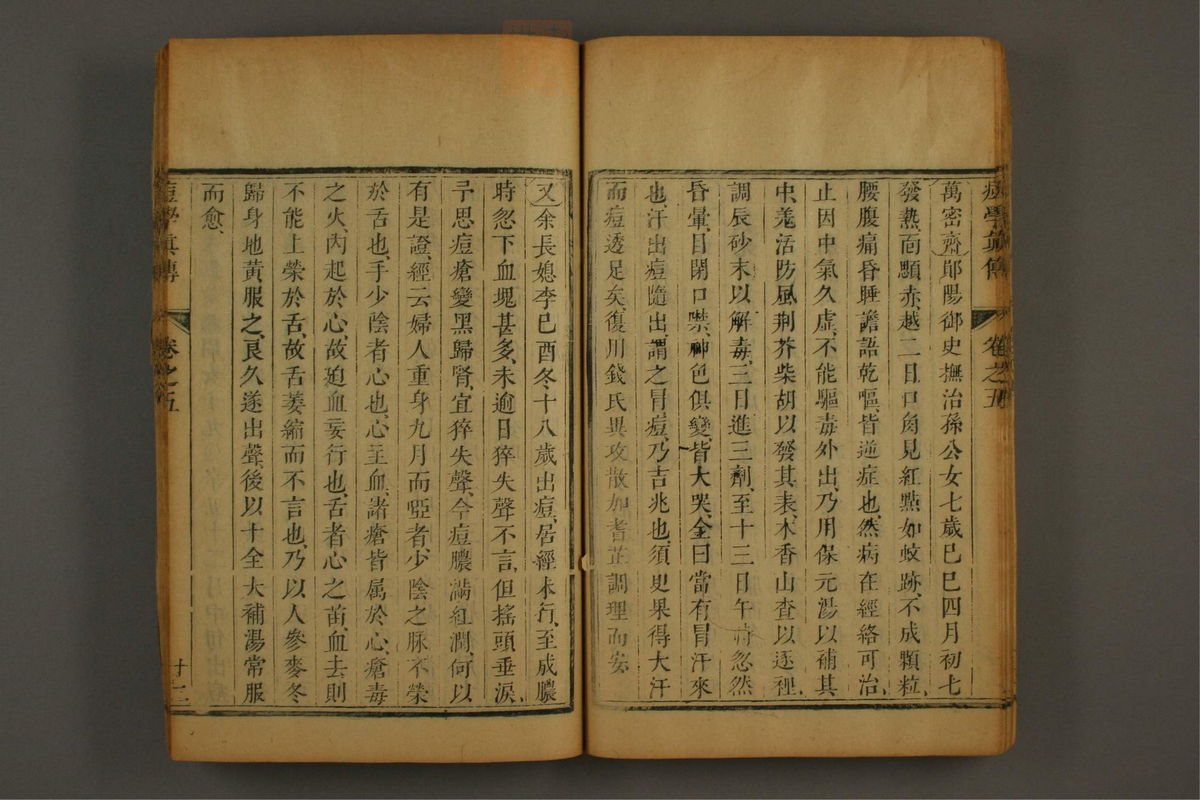 痘學眞傳 卷之五
萬密齋鄖陽御史撫治孫公女七歲己巳四月初七
發熱面顋赤越二日口角見紅點如蚊跡不成顆粒
腰腹痛昏睡譫語乾嘔皆逆症也然病在經絡可治
止因中氣久虛不能驅毒外出乃用保元湯以補其
中羌活防風荆芥柴胡以發其表木香山查以逐裡
調辰砂末以解毒三日進三劑至十三日午時忽然
昏暈目閉口噤神色俱變皆大哭金曰當有冒汗來
也汗出痘隨出謂之冒痘乃吉兆也須臾果得大汗
而痘透足矣復用錢氏異攻散加耆芷調理而安
又余長媳李己酉冬十八歲出痘居經未行至成膿
時忽下血塊甚多未逾日猝失聲不言但搖頭垂淚
予思痘瘡變黑歸腎宜猝失聲今痘膿滿紅潤何以
有是證經云婦人重身九月而啞者少陰之脉不榮
於舌也手少陰者心也心主血諸瘡皆属於心瘡毒
之火内起於心故廹血妄行也舌者心之苗血去則
不能上榮於舌故舌萎縮而不言也乃以人參麥冬
歸身地黃服之良久遂出聲後以十全大補湯常服
而愈
痘學眞傳 卷之五 廿二